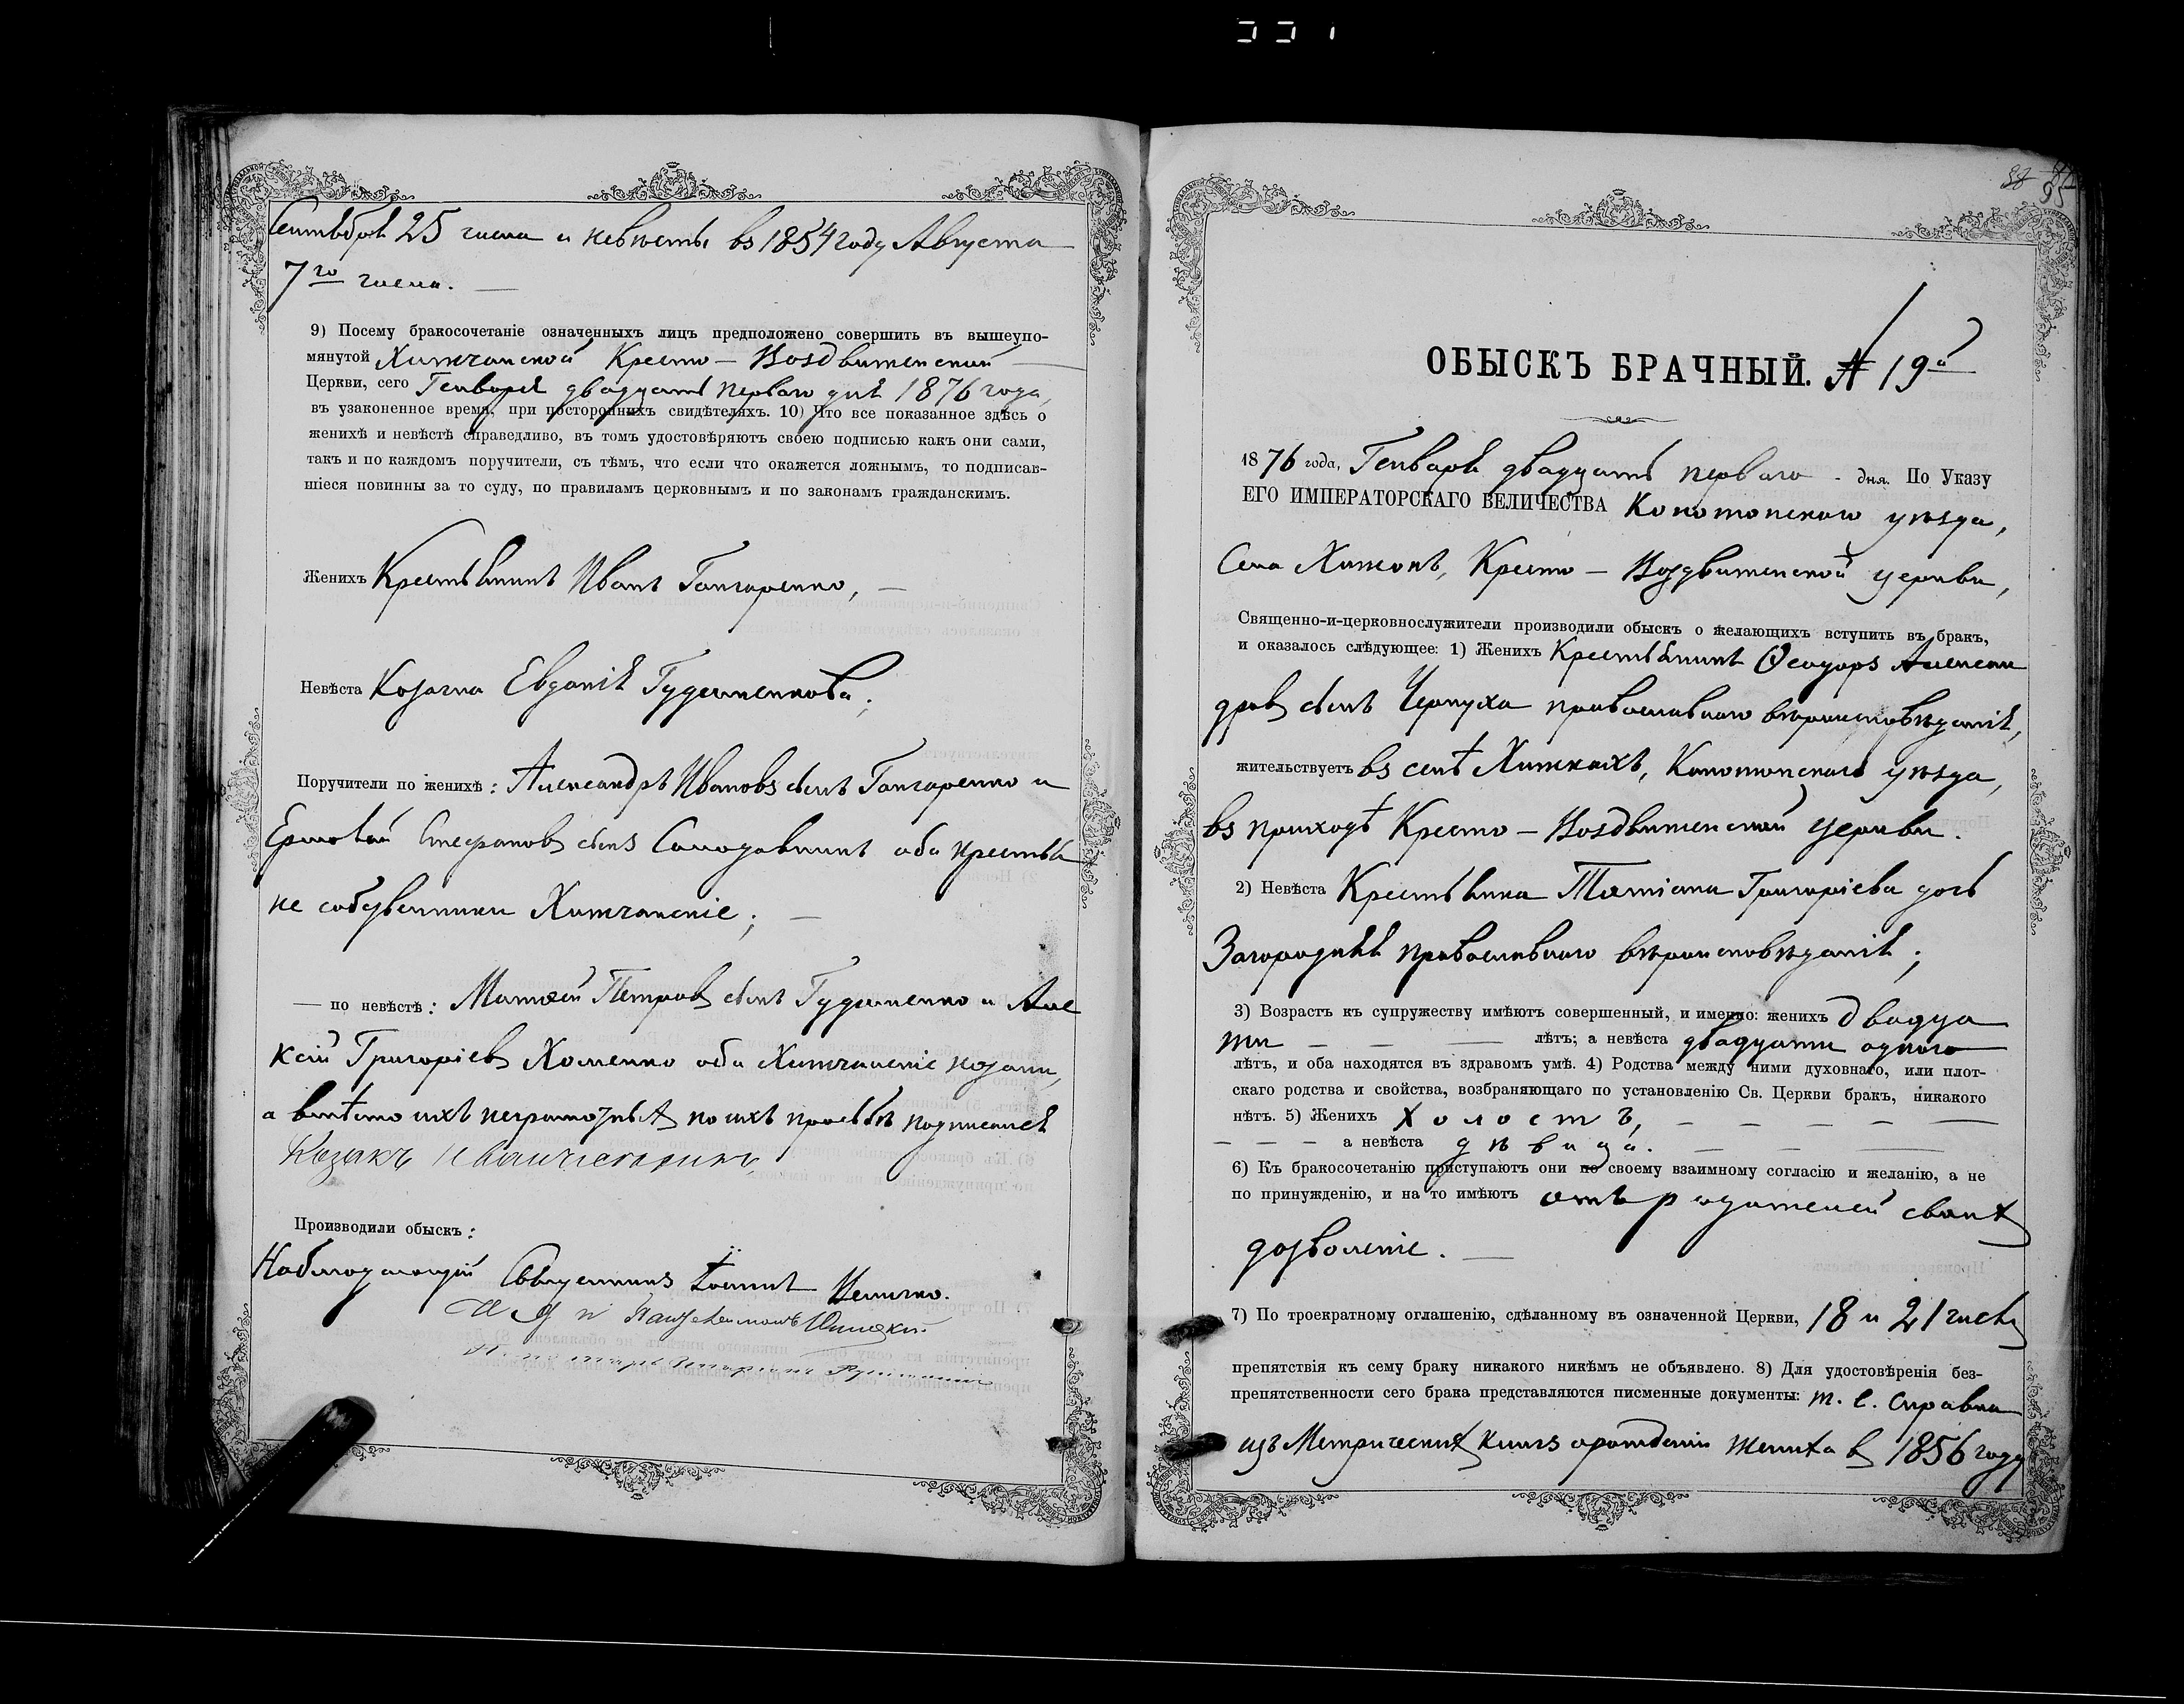 Сентября 25 числа и невесты въ 1854 году Августа
7го числа. —
9) Посему бракосочетаніе означенныхъ лицъ предположено совершить въ вышеупо-
мянутой Хижчанской Кресто-Воздвиженской
Церкви, сего Генваря двадцать перваго дня 1876 года,
въ узаконенное время, при постороннихъ свидѣтеляхъ. 10) Что все показанное здѣсь о
женихѣ и невѣстѣ справедливо, въ томъ удостовѣряютъ своею подписью какъ они сами,
такъ и по каждомъ поручители, съ тѣмъ, что если что окажется ложнымъ, то подписав-
шіеся повинны за то суду, по правиламъ церковнымъ и по законамъ гражданскимъ.
Женихъ Крестьянинъ Иванъ Гончаренко, —
Невѣста Козачка Евдокія Гудименкова;
Поручители по женихѣ: Александръ Ивановъ сынъ Гончаренко и
Стефановъ сынъ Солодовникъ оба крестья
не собственники Хижчанскіе; —
— по невѣстѣ: Матѳей Петровъ сынъ Гудименко и Але
ксій Григоріевъ Хоменко оба Хижчанскіе козаки,
а вмѣсто ихъ неграмотныхъ по ихъ просьбѣ подписался
Козакъ
Производили обыскъ:
Наблюдающій Священникъ Іоаннъ
18 76 года, Генваря двадцать перваго - дня. По Указу
ОБЫСКЪ БРАЧНЫЙ. № 19й
ЕГО ИМПЕРАТОРСКАГО ВЕЛИЧЕСТВА Конотопскаго уѣзда,
Села Хижокъ, Кресто-Воздвиженской церкви,
Священно-и-церковнослужители производили обыскъ о желающихъ вступить въ бракъ,
и оказалось слѣдующее: 1) Женихъ Крестьянинъ Ѳеодоръ Алексан
дровъ сынъ Черпуха православнаго вѣроисповѣданія,
жительствуетъ въ селѣ Хижкахъ, Конотопскаго уѣзда,
въ приходѣ Кресто-Воздвиженской церкви.
2) Невѣста Крестьянка Татіана Григоріева дочь
Загородняя православнаго вѣроисповѣданія;
3) Возрастъ къ супружеству имѣютъ совершенный, и именно: женихъ двадца
ти — — — лѣтъ; а невѣста двадцати одного
лѣтъ, и оба находятся въ здравомъ умѣ. 4) Родства между ними духовнаго, или плот-
скаго родства и свойства, возбраняющаго по установленію Св. Церкви бракъ, никакого
нѣтъ. 5) Женихъ холостъ, — — — —
— — — а невѣста дѣвица. — — —
6) Къ бракосочетанію приступаютъ они по своему взаимному согласію и желанію, а не
по принужденію, и на то имѣютъ отъ родителей своихъ
дозволеніе. —
7) По троекратному оглашенію, сдѣланному въ означенной Церкви, 18 и 21 чиселъ
препятствія къ сему браку никакого никѣмъ не объявлено. 8) Для удостовѣренія без-
препятственности сего брака представляются писменные документы: т. е. справка
изъ Метрическихъ книгъ о рожденіи жениха въ 1856 году